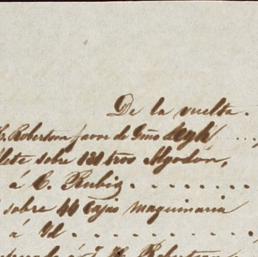 De la vuelta.
Robertson favor de Gmo
sobre 131 tros Algodon,
á C. Rubio
sobre 44 cajas maquinaria
á Id.
á J. H. Robertson